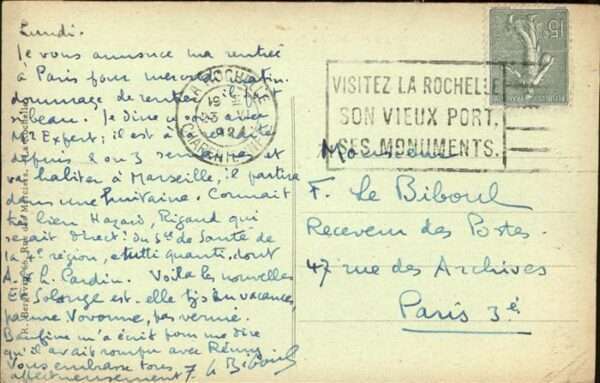 Lundi.
Je vous annonce ma rentrée
à Paris pour mercredi matin.
dommage de rentrer il fait
si beau. Je dîne avec
Mr Expert; il est à la
depuis 2 ou 3 semaines et
va habiter à Marseille, il partira
dans une huitaine. Connait
très bien Hazard, Rigaud qui
serait Direct. du Sce de Santé de
la région, e tutti quanti, dont
A. Pardin. Voilà les nouvelles
Et Solange est-elle tjs en vacances,
pauvre Vovonne, pas vernie.
m'a écrit pour me dire
qu'il avait rompu avec Rémy
Vous embrasse tous
affectueusement F. Le Biboul
LA ROCHELLE
CHARENTE INFRE
VISITEZ LA ROCHELLE
SON VIEUX PORT.
SES MONUMENTS.
15c
Monsieur
F. Le Biboul
Receveur des Postes
47 rue des Archives
Paris 3è